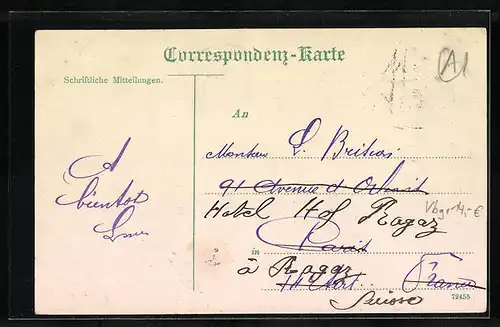 Correspondenz-Karte
A1
Schriftliche Mitteilungen.
An
A
bientot
Monsieur L.
91 Avenue d'
Hotel Hof Ragaz
Paris
in
à Ragaz
France
Suisse
72455